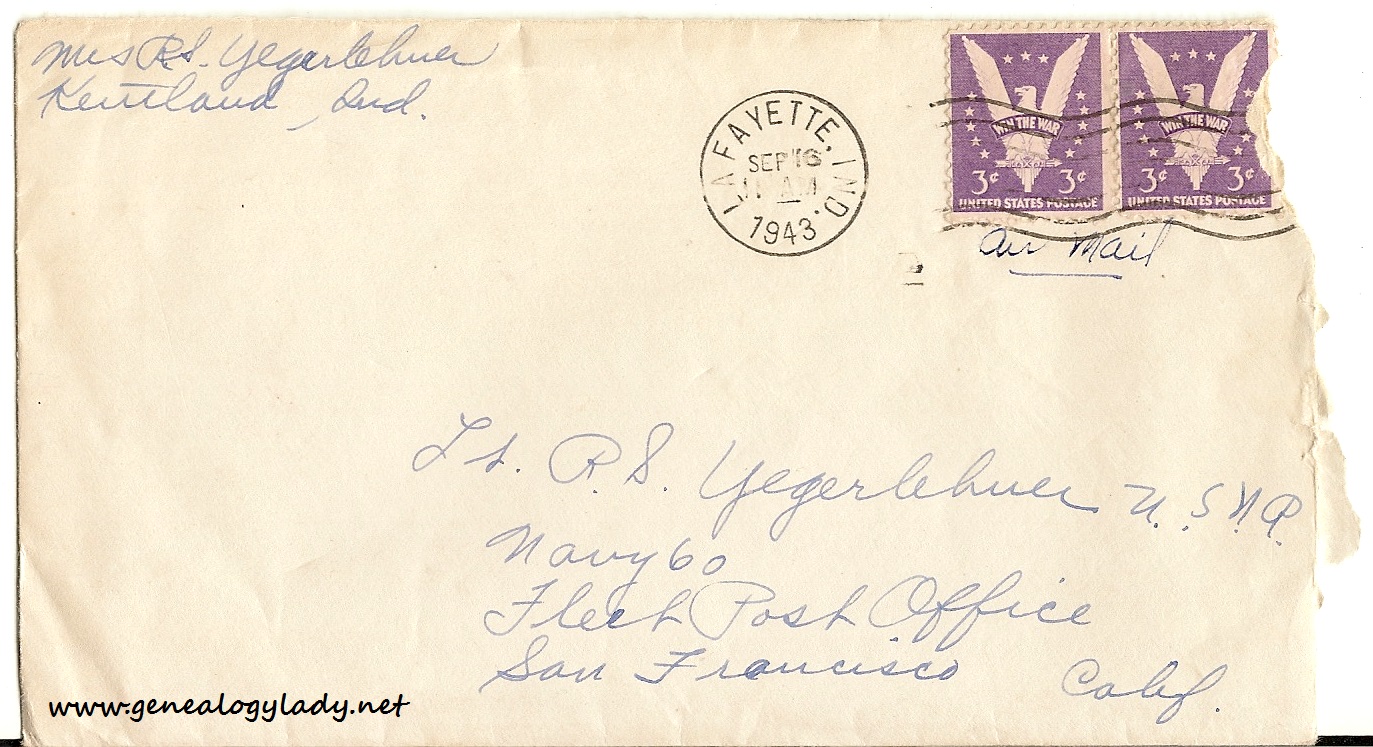 Mrs R.S. Yegerlehner
Kentland, Ind.
LAFAYETTE, IND.
SEP 16
AM
1943
WIN THE WAR
3¢ 3¢
UNITED STATES POSTAGE
WIN THE WAR
3¢ 3¢
UNITED STATES POSTAGE
Air Mail
Lt. R.S. Yegerlehner U.S.N.R.
Navy 60
Fleet Post Office
San Francisco Calif.
www.genealogylady.net